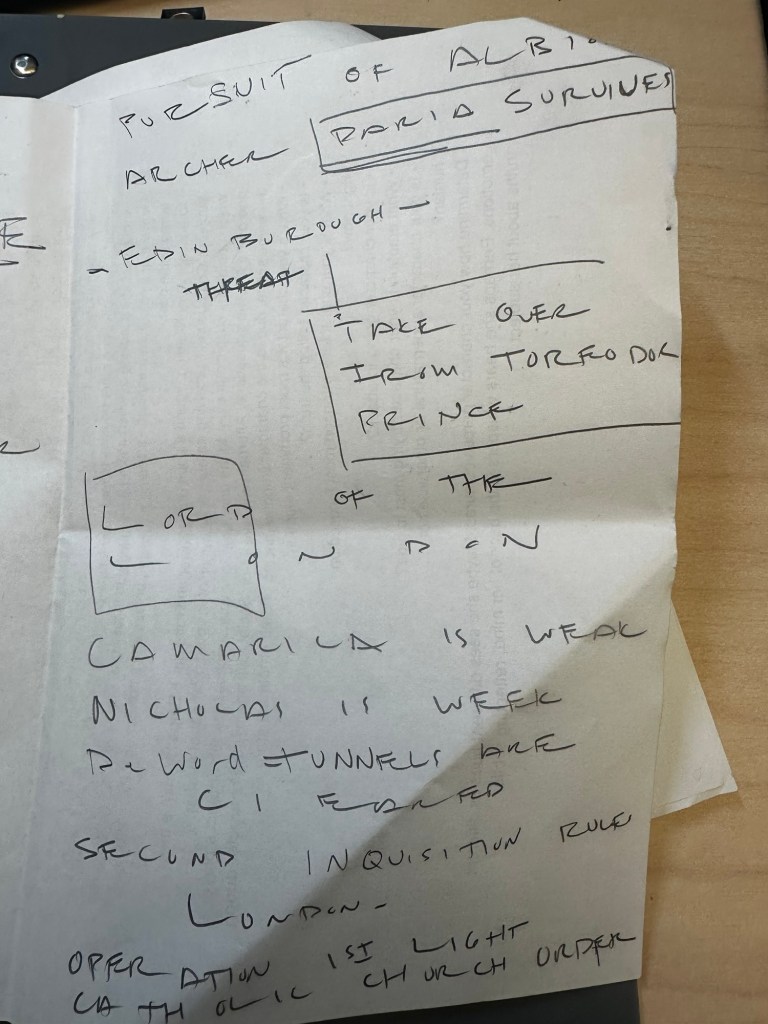 PURSUIT OF ALBI
ARCHER DARIA SURVIVES
- EDIN BUROUGH -
THREAT
TAKE OVER
FROM TOREODOR
PRINCE
LORD OF THE
LONDON
CAMARILLA IS WEAK
NICHOLAS IS WEEK
TUNNELS ARE
CLEARED
SECOND INQUISITION RULES
LONDON -
OPERATION 1ST LIGHT
CATHOLIC CHURCH ORDER